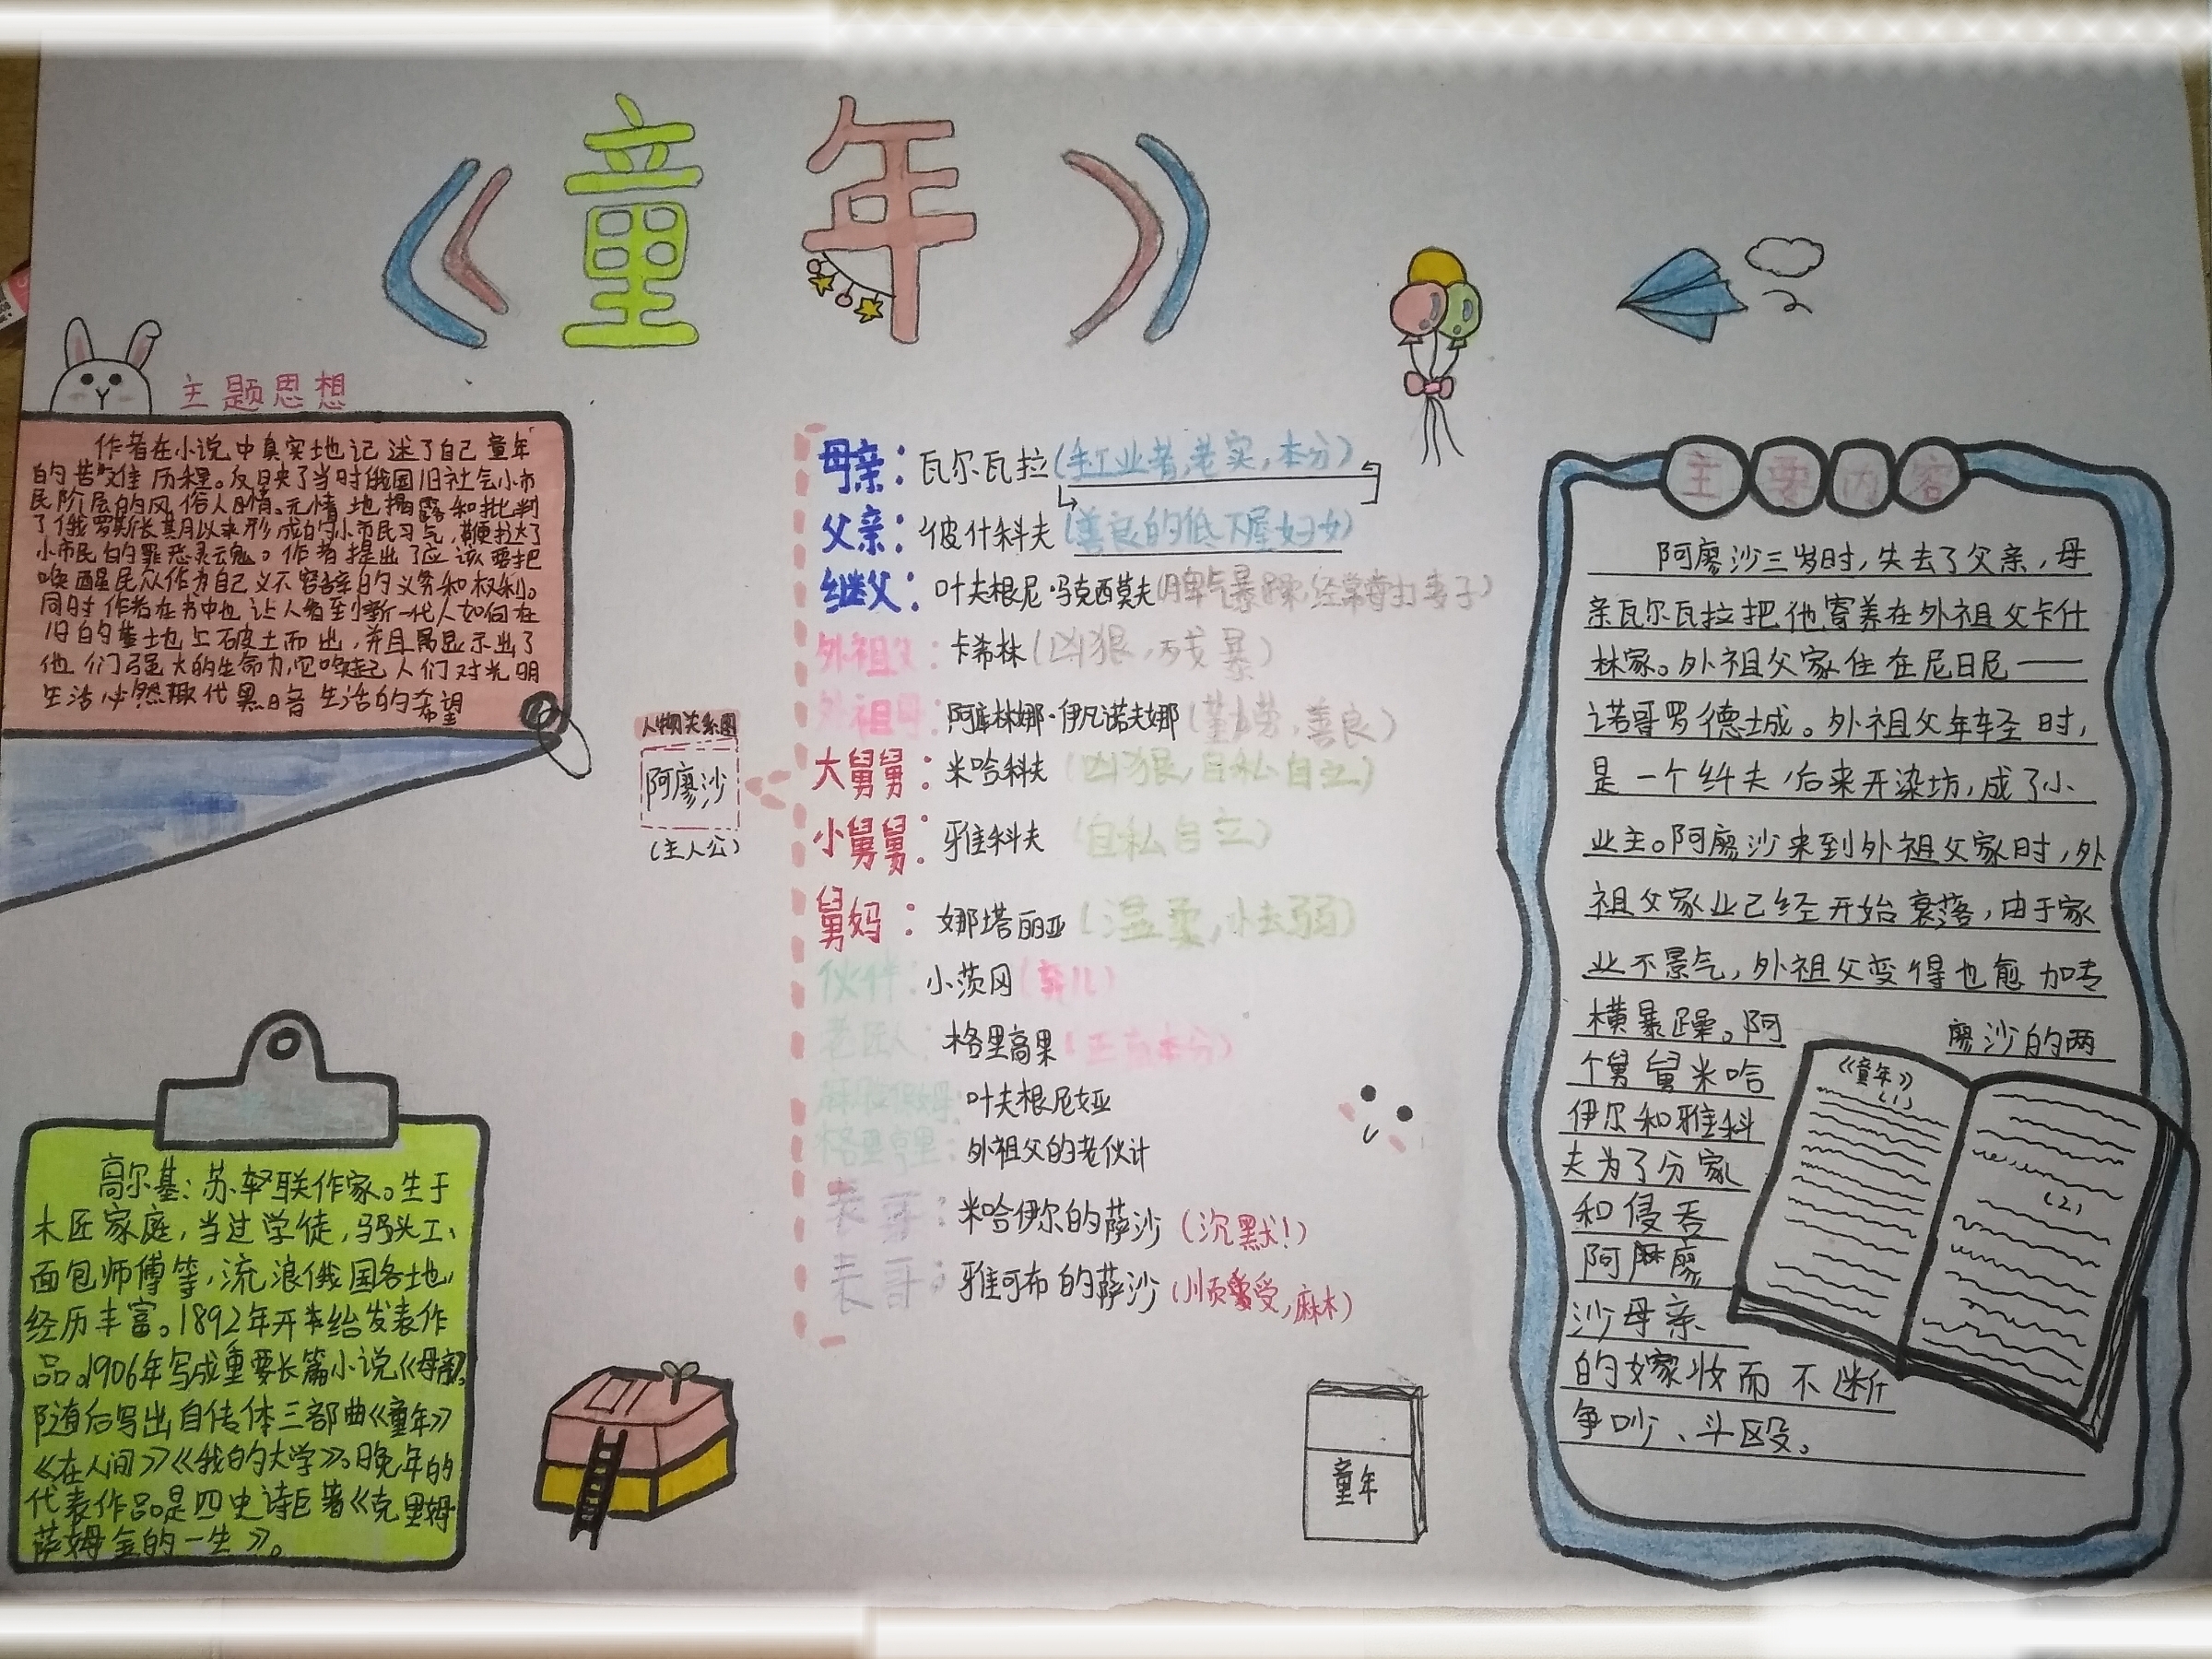 《童年》
主题思想
作者在小说中真实地记述了自己童年
的苦难历程。反映了当时俄国旧社会小市
民阶层的风俗人情。无情地揭露和批判
了俄罗斯长期以来形成的小市民习气，鞭挞了
小市民的罪恶灵魂。作者提出了应该要把
唤醒民众作为自己义不容辞的义务和权利。
同时作者在书中也让人看到新一代人如何在
旧的基土地上破土而出，并且显示出了
他们强大的生命力，它唤起人们对光明
生活必然取代黑暗生活的希望
人物关系图
阿廖沙
（主人公）
母亲：瓦尔瓦拉（手工业者，老实，本分）
父亲：彼什科夫（善良的低下层妇女）
继父：叶夫根尼·马克西莫夫（脾气暴躁，经常毒打妻子）
外祖父：卡希林（凶狠，残暴）
外祖母：阿库林娜·伊凡诺夫娜（勤劳，善良）
大舅舅：米哈科夫（凶狠，自私自立）
小舅舅：雅科夫（自私自立）
舅妈：娜塔丽亚（温柔，怯弱）
伙伴：小茨冈（弃儿）
老匠人：格里高果（正直本分）
麻脸保姆：叶夫根尼娅
格里亨里：外祖父的老伙计
表哥：米哈伊尔的萨沙（沉默！）
表哥：雅可布的萨沙（顺受，麻木）
高尔基：苏联作家。生于
木匠家庭，当过学徒，码头工、
面包师傅等，流浪俄国各地，
经历丰富。1892年开始发表作
品。1906年写成重要长篇小说《母亲》。
随后写出自传体三部曲《童年》
《在人间》《我的大学》。晚年的
代表作品是四史诗巨著《克里姆
萨姆金的一生》。
童年
主要内容
阿廖沙三岁时，失去了父亲，母
亲瓦尔瓦拉把他寄养在外祖父卡什
林家。外祖父家住在尼日尼——
诺哥罗德城。外祖父年轻时，
是一个纤夫，后来开染坊，成了小
业主。阿廖沙来到外祖父家时，外
祖父家业已经开始衰落，由于家
业不景气，外祖父变得也愈加专
横暴躁。阿廖沙的两
个舅舅米哈
伊尔和雅科
夫为了分家
和侵吞
阿廖
沙母亲
的嫁妆而不断
争吵、斗殴。
《童年》
（1）
（2）